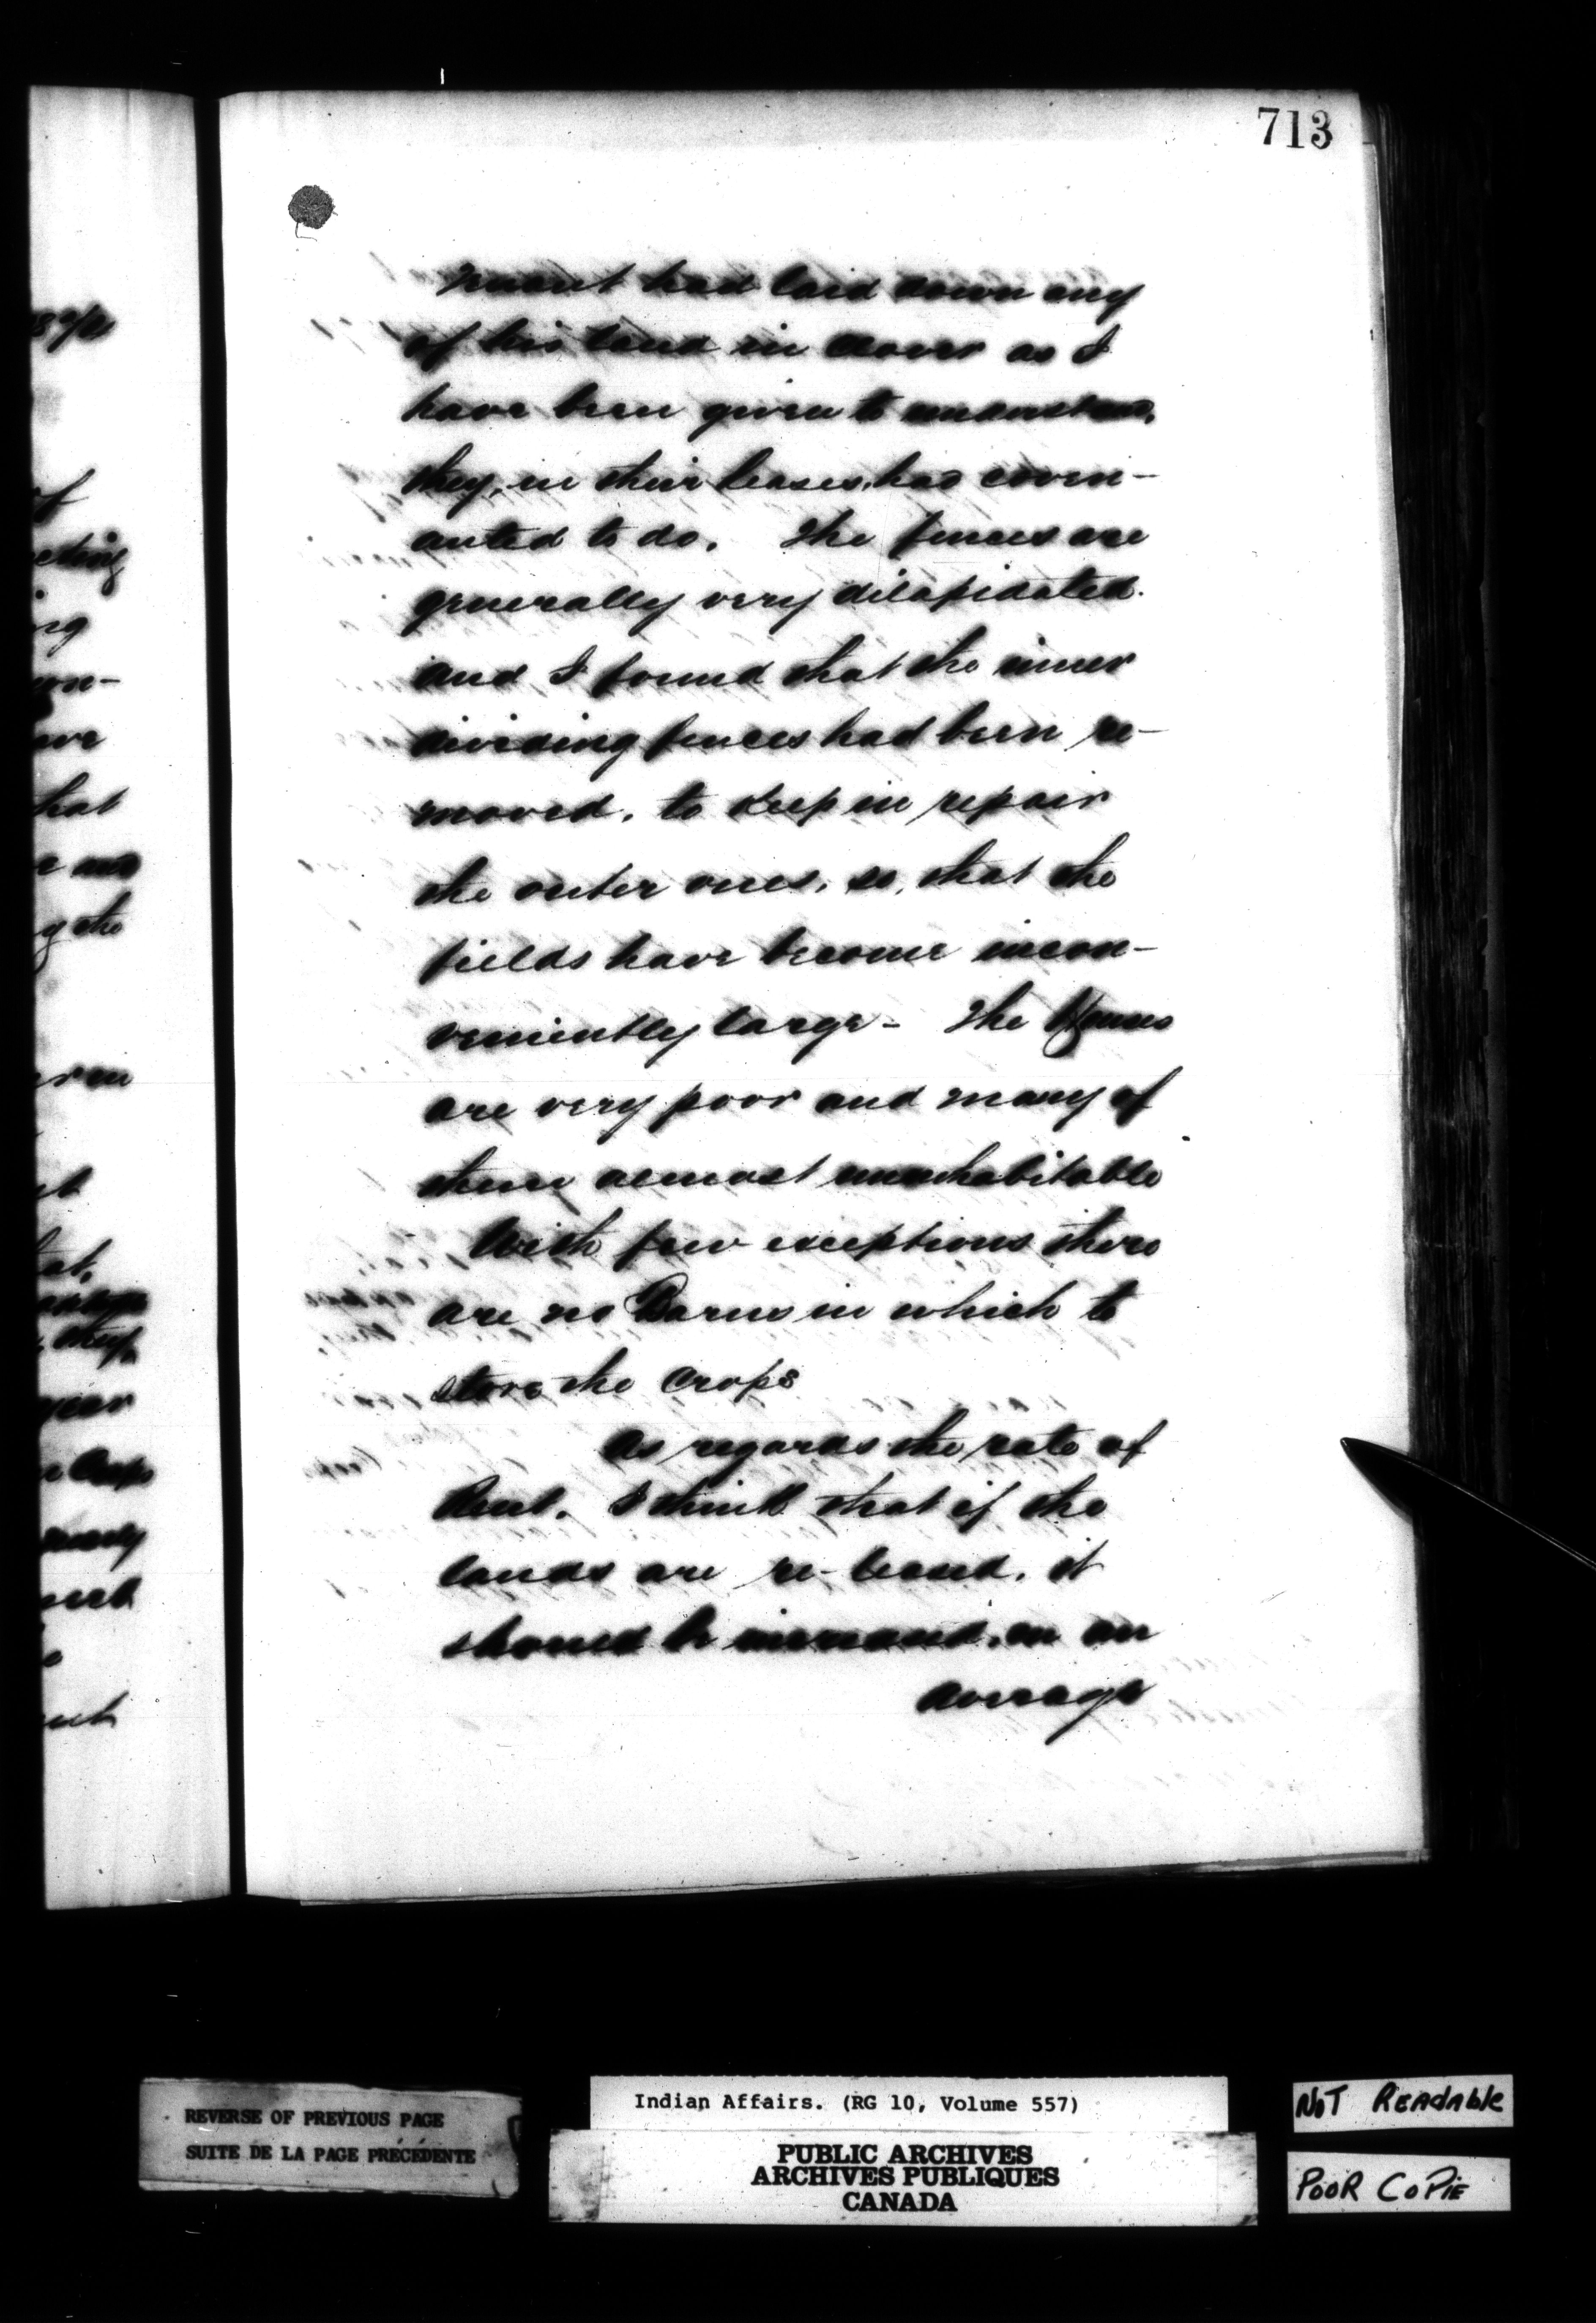 713
nant had laid down any
of his land in clover as I
have been given to understand,
they, in their leases, had coven-
anted to do. The fences are
generally very dilapidated.
and I found that the inner
dividing fences had been re-
moved, to keep in repair
the outer ones, so, that the
fields have become incon-
veniently large - The Houses
are very poor and many of
them almost uninhabitable
With few exceptions there
are no Barns in which to
store the Crops
As regards the rate of
Rent. I think that if the
lands are re-leased, it
should be increased, on an
average
of
eting
ing
on-
hat
g the
year
REVERSE OF PREVIOUS PAGE
SUITE DE LA PAGE PRÉCÉDENTE
Indian Affairs. (RG 10, Volume 557)
PUBLIC ARCHIVES
ARCHIVES PUBLIQUES
CANADA
NOT READABLE
POOR COPIE